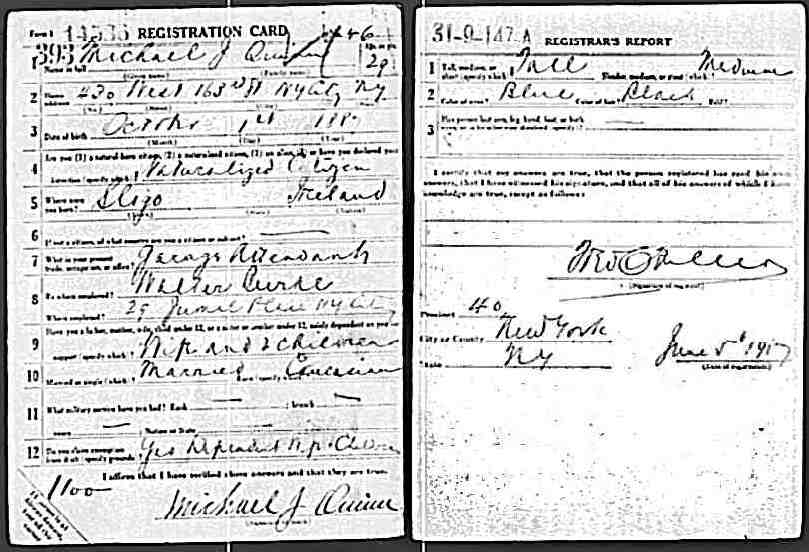 Form 1 14535 REGISTRATION CARD 146
393 Michael J Quinn 29
1 Name in full
(Given name) (Family name)
2 Home address 430 West 163rd St NYCity NY
(No.) (Street) (City) (State)
3 Date of birth October 1st 1887
(Month) (Day) (Year)
4 Are you (1) a natural-born citizen, (2) a naturalized citizen, (3) an alien, (4) or have you declared your
intention (specify which)? Naturalized Citizen
5 Where were you born? Sligo Ireland
(Town) (State) (Nation)
6 If not a citizen, of what country are you a citizen or subject?
7 What is your present trade, occupation, or office? Garage Attendant
8 By whom employed? Walter Burke
Where employed? 29 Jumel Place NYCity
9 Have you a father, mother, wife, child under 12, or a sister or brother under 12, solely dependent on you for
support (specify which)? Wife and 2 children
10 Married or single (which)? Married Race (specify which)? Caucasian
11 What military service have you had? Rank ; branch
years ; Nation or State
12 Do you claim exemption from draft (specify grounds)? Yes Dependent Wife + Children
I affirm that I have verified above answers and that they are true.
1100
Michael J Quinn
31-9-147-A REGISTRAR'S REPORT
1 Tall, medium, or short (specify which)? Tall Slender, medium, or stout (which)? Medium
2 Color of eyes? Blue Color of hair? Black Bald?
3 Has person lost arm, leg, hand, foot, or both
I certify that my answers are true, that the person registered has read his own
answers, that I have witnessed his signature, and that all of his answers of which I have
knowledge are true, except as follows:
(Signature of registrar)
Precinct 40
City or County New York
State NY June 5th 1917
(Date of registration)